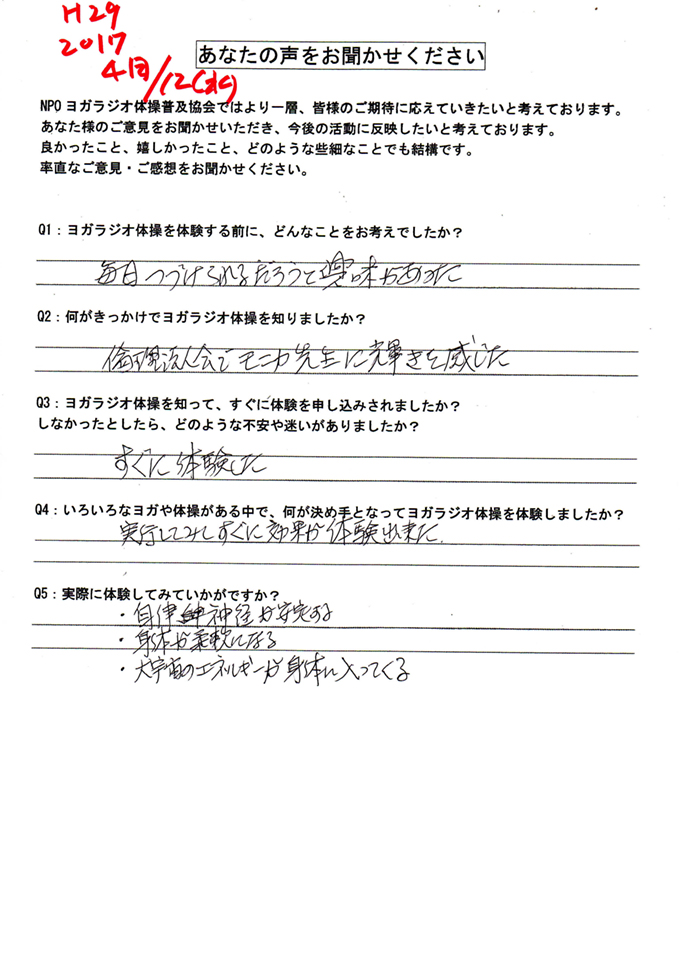 H29
2017
4月/12(水)
あなたの声をお聞かせください
NPO ヨガラジオ体操普及協会ではより一層、皆様のご期待に応えていきたいと考えております。
あなた様のご意見をお聞かせいただき、今後の活動に反映したいと考えております。
良かったこと、嬉しかったこと、どのような些細なことでも結構です。
率直なご意見・ご感想をお聞かせください。
Q1：ヨガラジオ体操を体験する前に、どんなことをお考えでしたか？
毎日つづけられるだろうと興味があった
Q2：何がきっかけでヨガラジオ体操を知りましたか？
倫理法人会でモニカ先生に輝きを感じた
Q3：ヨガラジオ体操を知って、すぐに体験を申し込みされましたか？
しなかったとしたら、どのような不安や迷いがありましたか？
すぐに体験した
Q4：いろいろなヨガや体操がある中で、何が決め手となってヨガラジオ体操を体験しましたか？
実行してみてすぐに効果が体験出来た.
Q5：実際に体験してみていかがですか？
・自律神経が安定する
・身体が柔軟になる
・大宇宙のエネルギーが身体に入ってくる